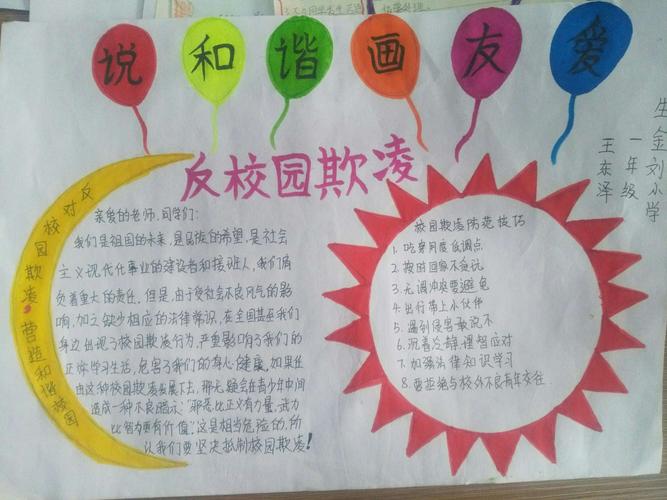 说和谐画友爱
反校园欺凌
生金刘小学
一年级
王东泽
反对校园欺凌,营造和谐校园
亲爱的老师、同学们:
我们是祖国的未来,是民族的希望,是社会
主义现代化事业的建设者和接班人,我们肩
负着重大的责任,但是,由于受社会不良风气的影
响,加之缺少相应的法律常识,在全国甚至我们
身边出现了校园欺凌行为,严重影响了我们的
正常学习生活,危害了我们的身心健康,如果任
由这种校园欺凌发展下去,那无疑会在青少年中间
造成一种不良暗示:“邪恶比正义有力量,武力
比智力更有价值”,这是相当危险的,所
以我们要坚决抵制校园欺凌!
校园欺凌防范技巧
1. 吃穿用度低调点
2. 按时回家不贪玩
3. 无谓冲突要避免
4. 出行带上小伙伴
5. 遇到侵害敢说不
6. 沉着冷静理智应对
7. 加强法律知识学习
8. 要拒绝与校外不良青年交往